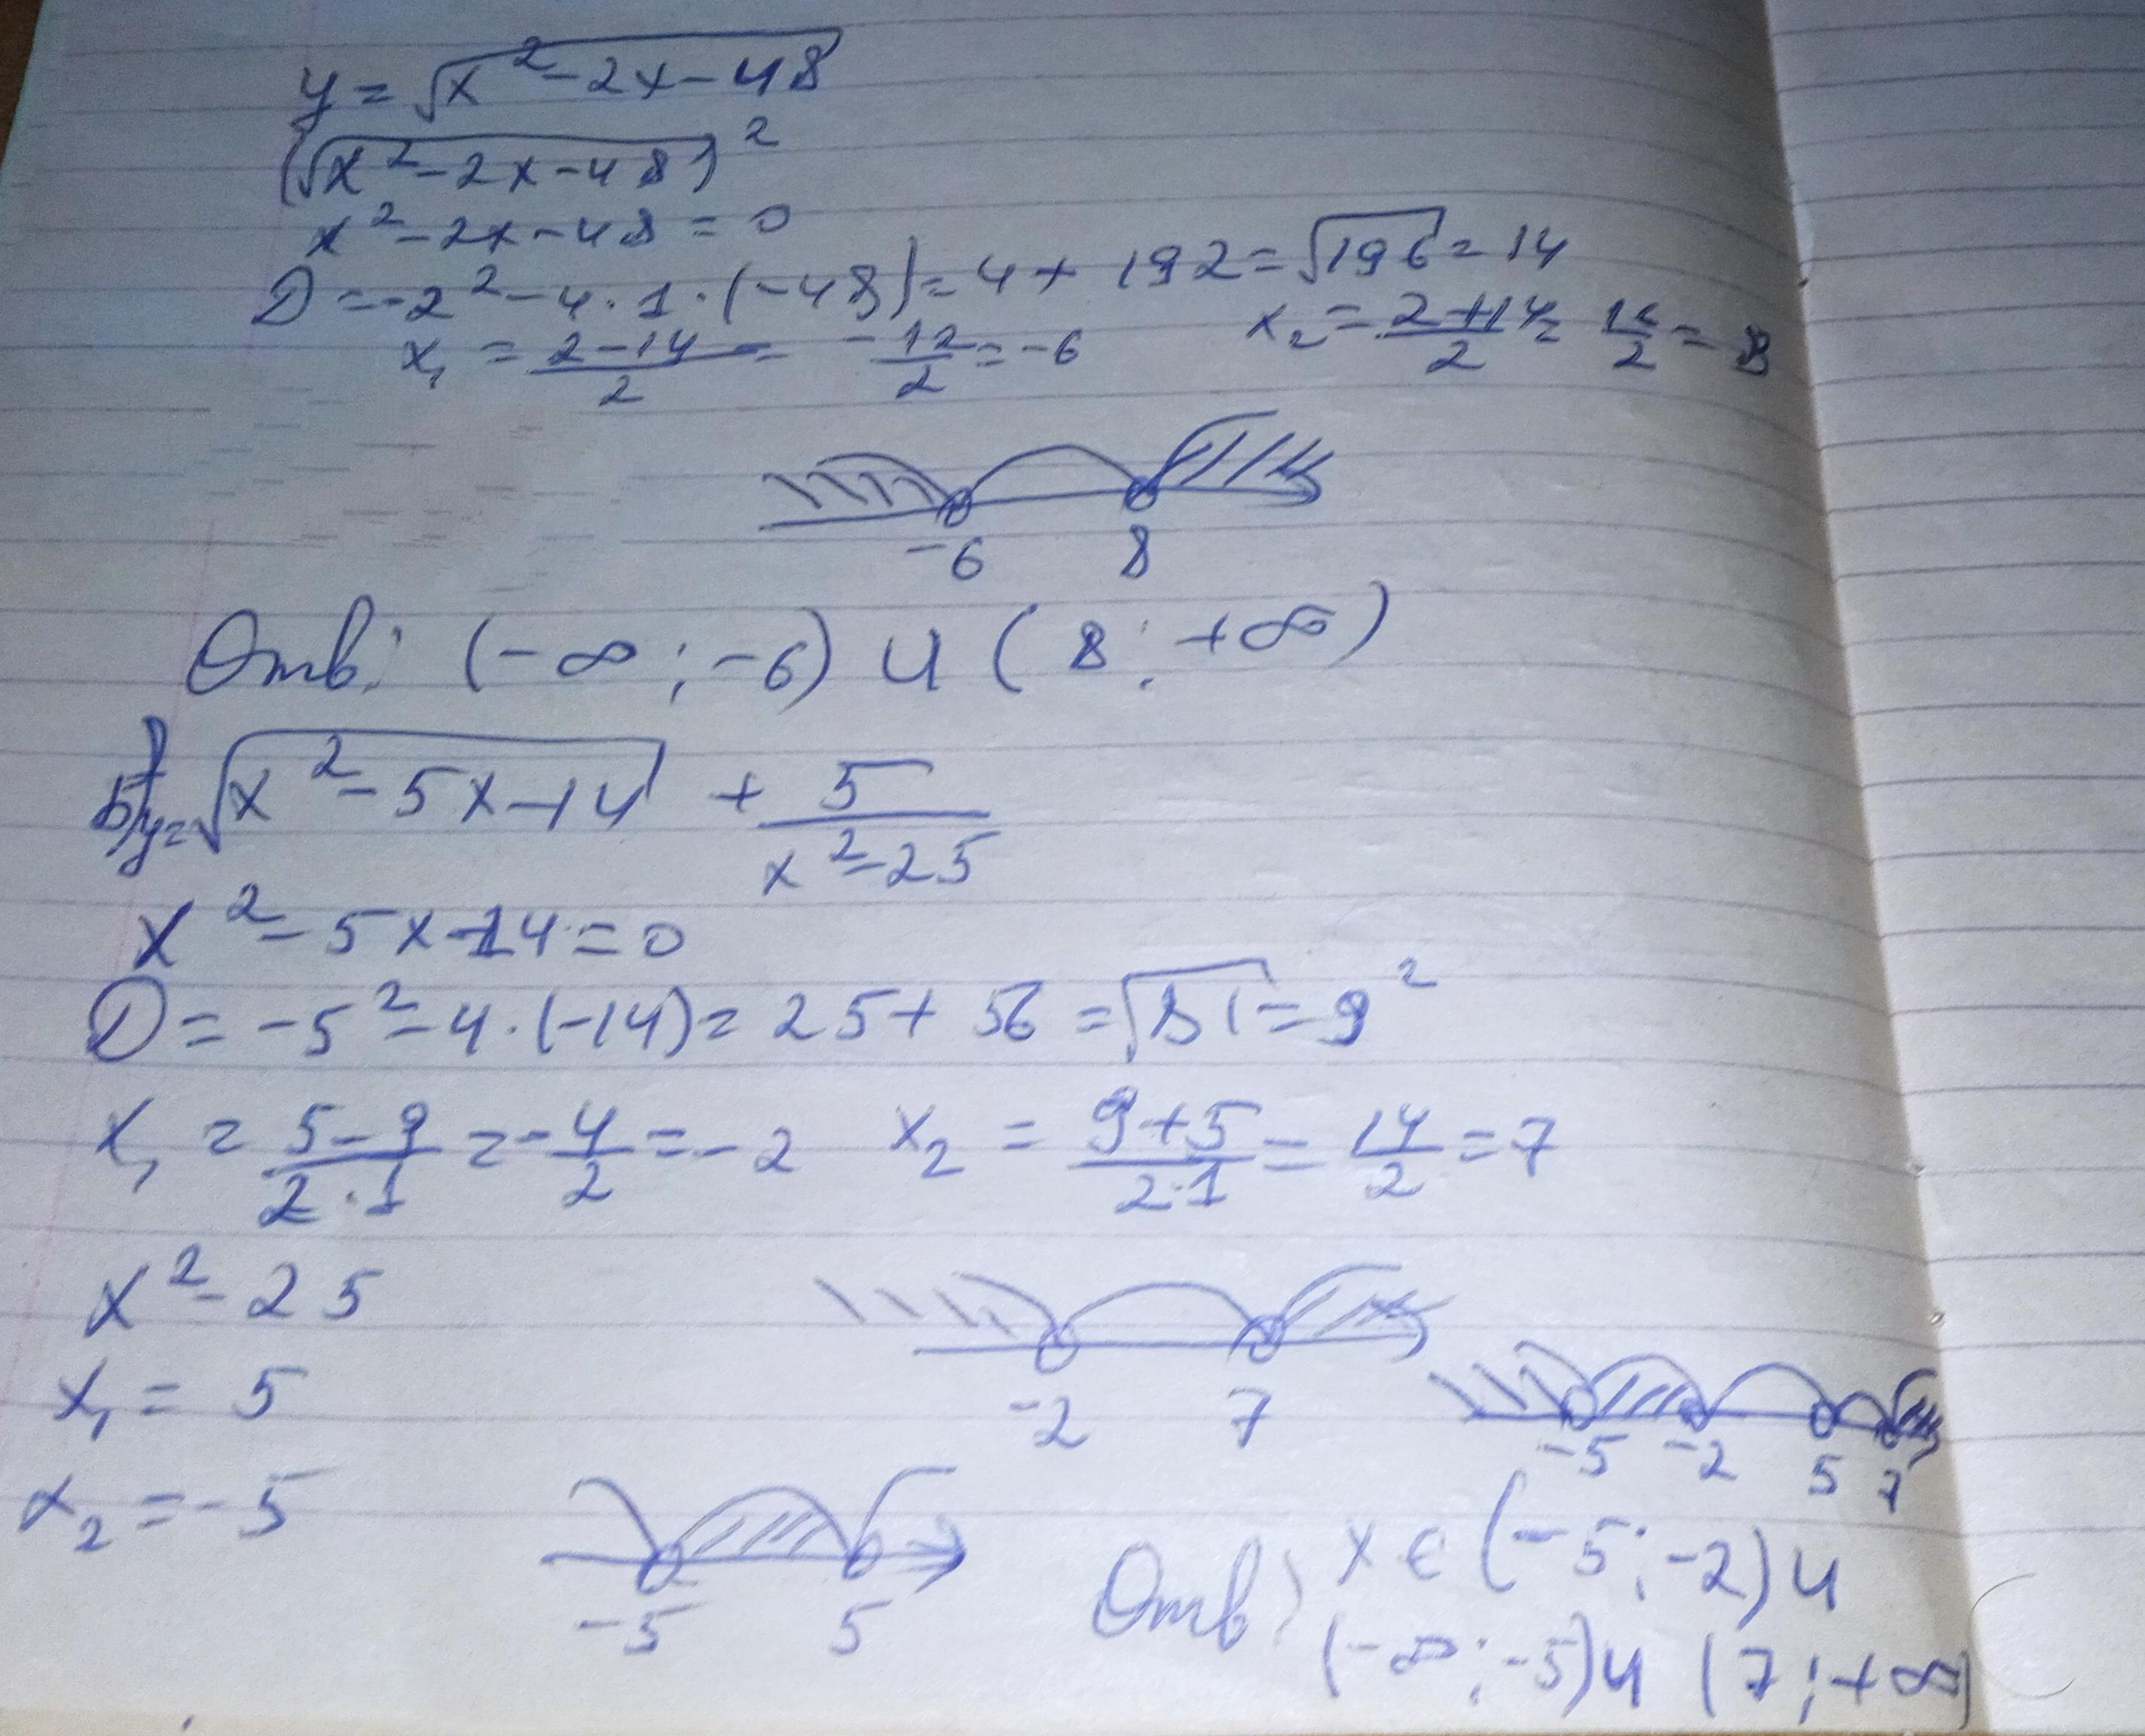 y = √(x² - 2x - 48)
(√(x² - 2x - 48))²
x² - 2x - 48 = 0
D = -2² - 4 · 1 · (-48) = 4 + 192 = √196 = 14
x₁ = (2 - 14)/2 = -12/2 = -6 x₂ = (2 + 14)/2 = 16/2 = 8
-6 8
Отв: (-∞ ; -6) ∪ (8 ; +∞)
б) y = √(x² - 5x - 14) + 5/(x² - 25)
x² - 5x - 14 = 0
D = -5² - 4 · (-14) = 25 + 56 = √81 = 9²
x₁ = (5 - 9)/(2 · 1) = -4/2 = -2 x₂ = (9 + 5)/(2 · 1) = 14/2 = 7
x² - 25
x₁ = 5
-2 7
-5 -2 5 7
x₂ = -5
-5 5
Отв: x ∈ (-5 ; -2) ∪
(-∞ ; -5) ∪ (7 ; +∞)